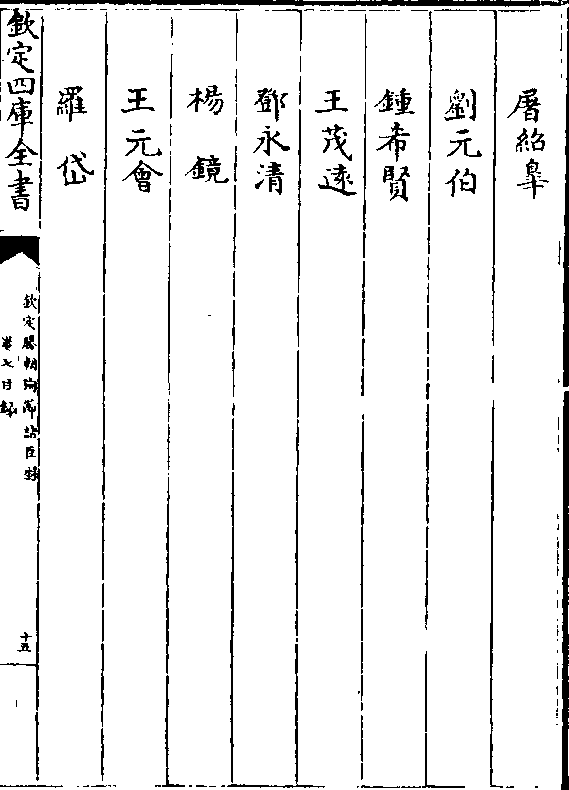 屠紹臯
劉元伯
鍾希賢
王茂逺
鄧永清
楊鏡
王元㑹
羅岱
欽定四庫全書
欽定勝朝殉節諸臣録
卷七目録
十五